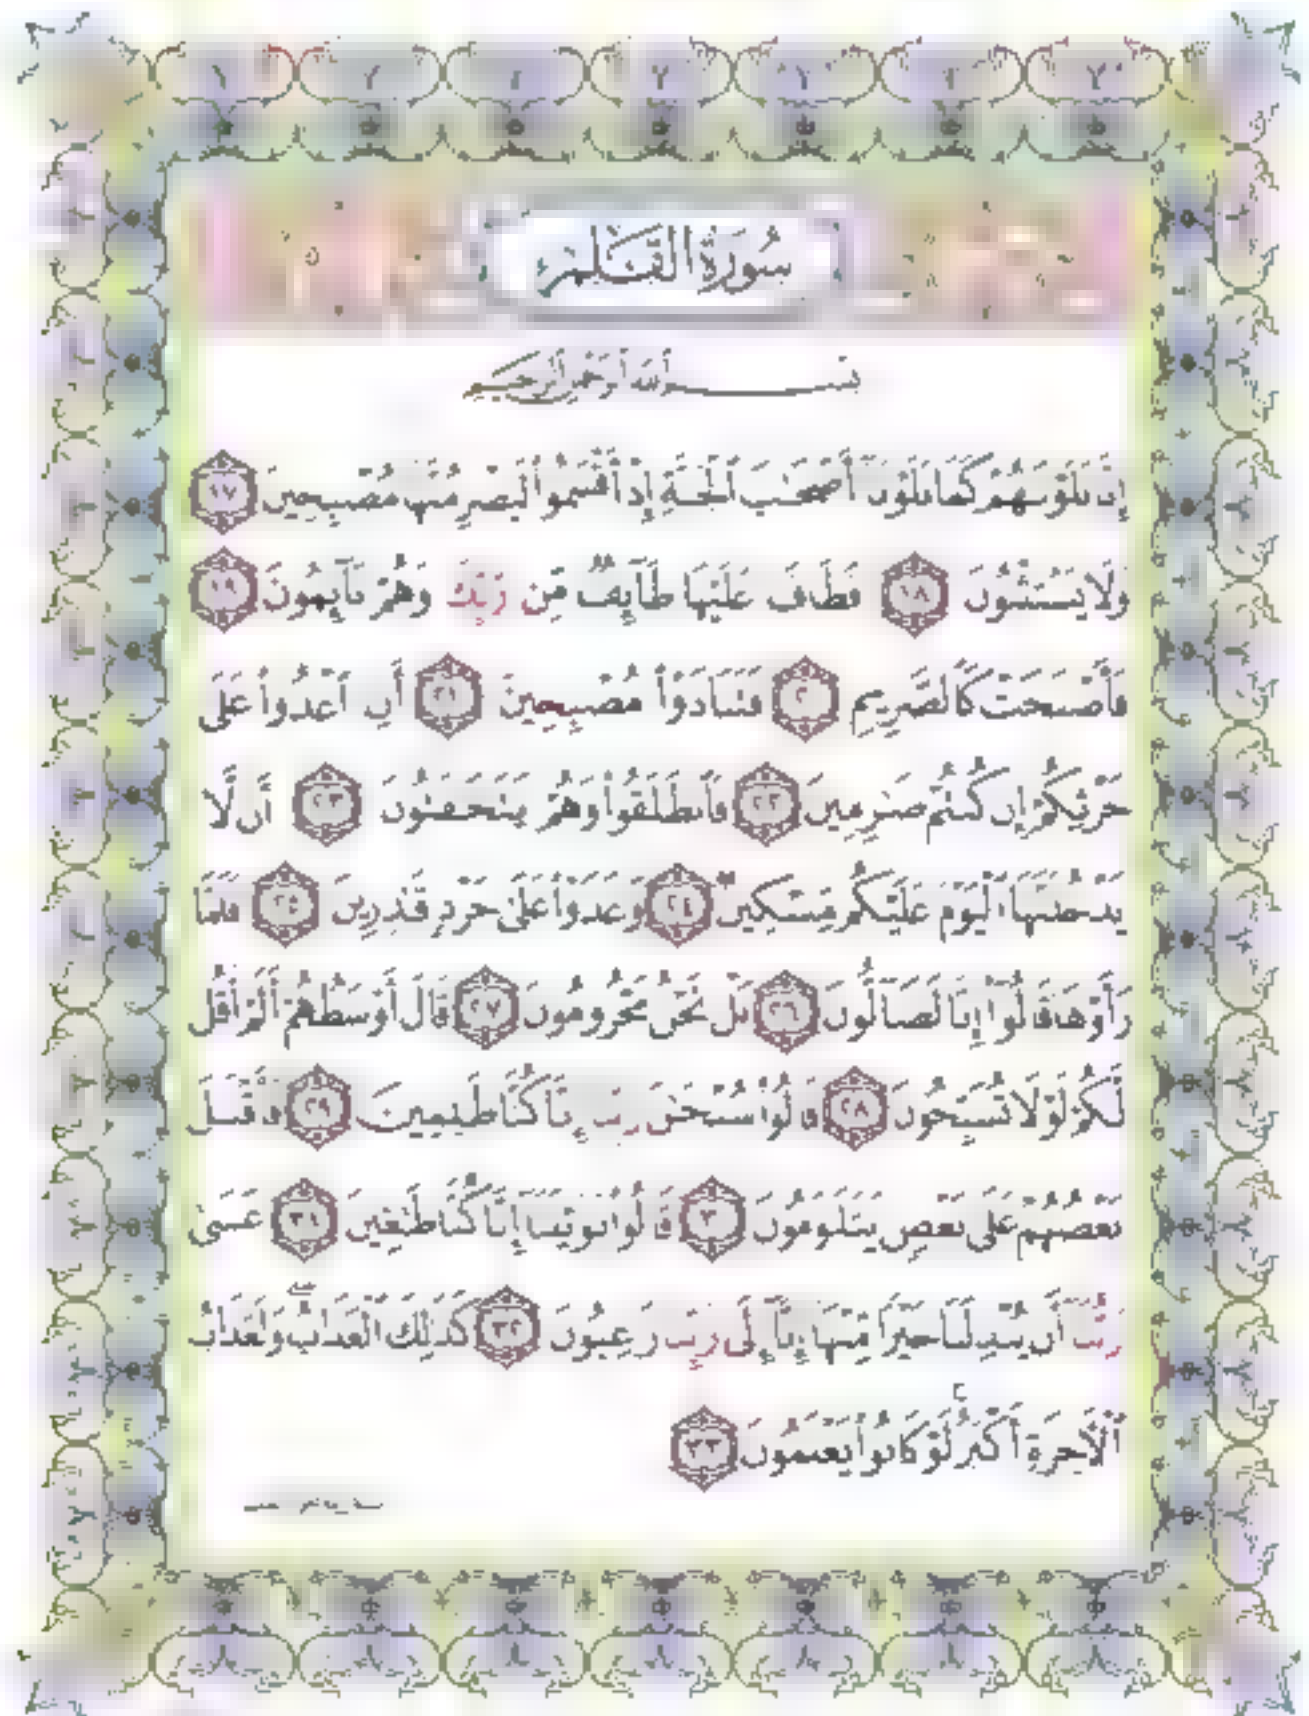 سُورَةُ القَلَمِ
بِسْمِ ٱللَّهِ ٱلرَّحْمَٰنِ ٱلرَّحِيمِ
إِنَّا بَلَوْنَٰهُمْ كَمَا بَلَوْنَآ أَصْحَٰبَ ٱلْجَنَّةِ إِذْ أَقْسَمُوا۟ لَيَصْرِمُنَّهَا مُصْبِحِينَ ١٧
وَلَا يَسْتَثْنُونَ ١٨ فَطَافَ عَلَيْهَا طَآئِفٌ مِّن رَّبِّكَ وَهُمْ نَآئِمُونَ ١٩
فَأَصْبَحَتْ كَٱلصَّرِيمِ ٢٠ فَتَنَادَوْا۟ مُصْبِحِينَ ٢١ أَنِ ٱغْدُوا۟ عَلَىٰ
حَرْثِكُمْ إِن كُنتُمْ صَٰرِمِينَ ٢٢ فَٱنطَلَقُوا۟ وَهُمْ يَتَخَٰفَتُونَ ٢٣ أَن لَّا
يَدْخُلَنَّهَا ٱلْيَوْمَ عَلَيْكُم مِّسْكِينٌ ٢٤ وَغَدَوْا۟ عَلَىٰ حَرْدٍ قَٰدِرِينَ ٢٥ فَلَمَّا
رَأَوْهَا قَالُوٓا۟ إِنَّا لَضَآلُّونَ ٢٦ بَلْ نَحْنُ مَحْرُومُونَ ٢٧ قَالَ أَوْسَطُهُمْ أَلَمْ أَقُل
لَّكُمْ لَوْلَا تُسَبِّحُونَ ٢٨ قَالُوا۟ سُبْحَٰنَ رَبِّنَآ إِنَّا كُنَّا ظَٰلِمِينَ ٢٩ فَأَقْبَلَ
بَعْضُهُمْ عَلَىٰ بَعْضٍ يَتَلَٰوَمُونَ ٣٠ قَالُوا۟ يَٰوَيْلَنَآ إِنَّا كُنَّا طَٰغِينَ ٣١ عَسَىٰ
رَبُّنَآ أَن يُبْدِلَنَا خَيْرًا مِّنْهَآ إِنَّآ إِلَىٰ رَبِّنَا رَٰغِبُونَ ٣٢ كَذَٰلِكَ ٱلْعَذَابُ وَلَعَذَابُ
ٱلْءَاخِرَةِ أَكْبَرُ لَوْ كَانُوا۟ يَعْلَمُونَ ٣٣